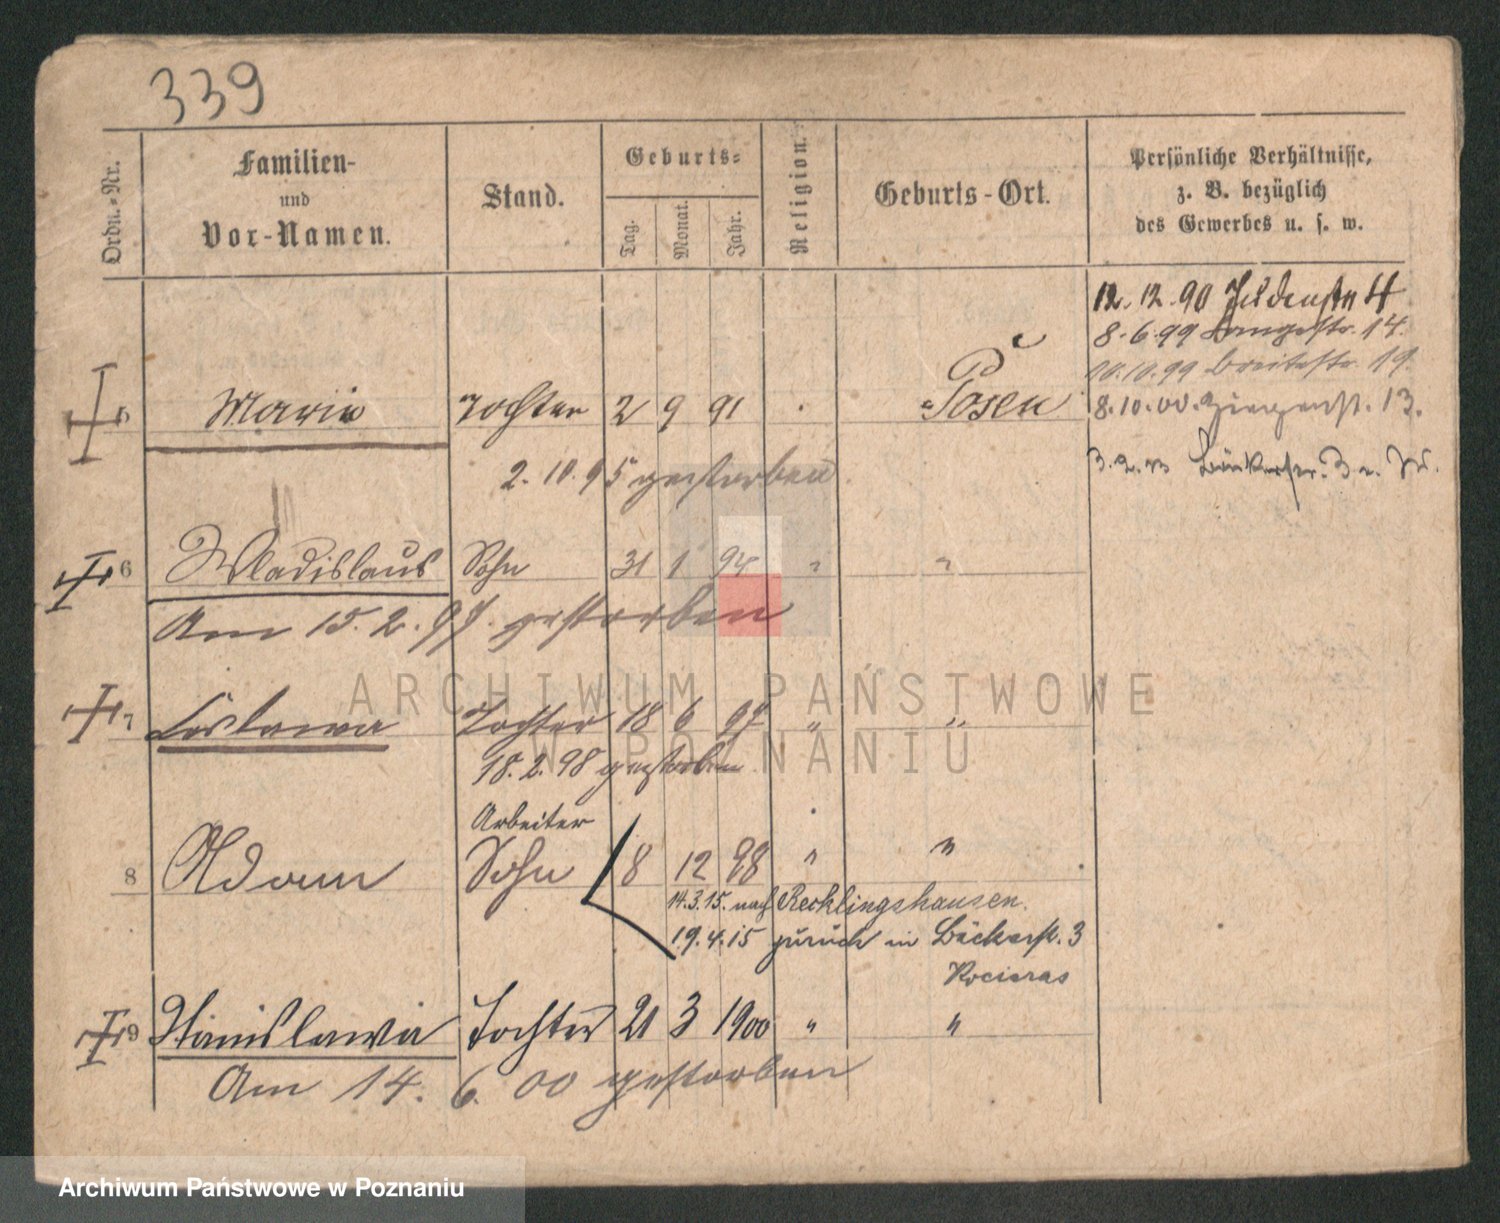 339
Ordn.-Nr.
Familien-
und
Vor-Namen.
Stand.
Geburts-
Tag.
Monat.
Jahr.
Religion.
Geburts-Ort.
Persönliche Verhältnisse,
z. B. bezüglich
des Gewerbes u. s. w.
12. 12. 90 Judenstr. 4
8. 6. 99 Langestr. 14.
10. 10. 99 Breitestr. 19.
5 Marie Tochter 2 9 91 Posen
8. 10. 00. Ziegenstr. 13.
Bäckerstr. 3
2. 10. 95 gestorben
6 Wladislaus Sohn 31 1 94 " "
Am 15. 2. 97. gestorben
7 Tochter 18 6 97 " "
18. 2. 98 gestorben
Arbeiter
8 Adam Sohn 8 12 98 " "
14. 3. 15. nach Recklingshausen.
19. 4. 15 zurück in Bäckerstr. 3
9 Stanislawa Tochter 21 3 1900 " "
Am 14. 6. 00 gestorben
ARCHIWUM PAŃSTWOWE
W POZNANIU
Archiwum Państwowe w Poznaniu